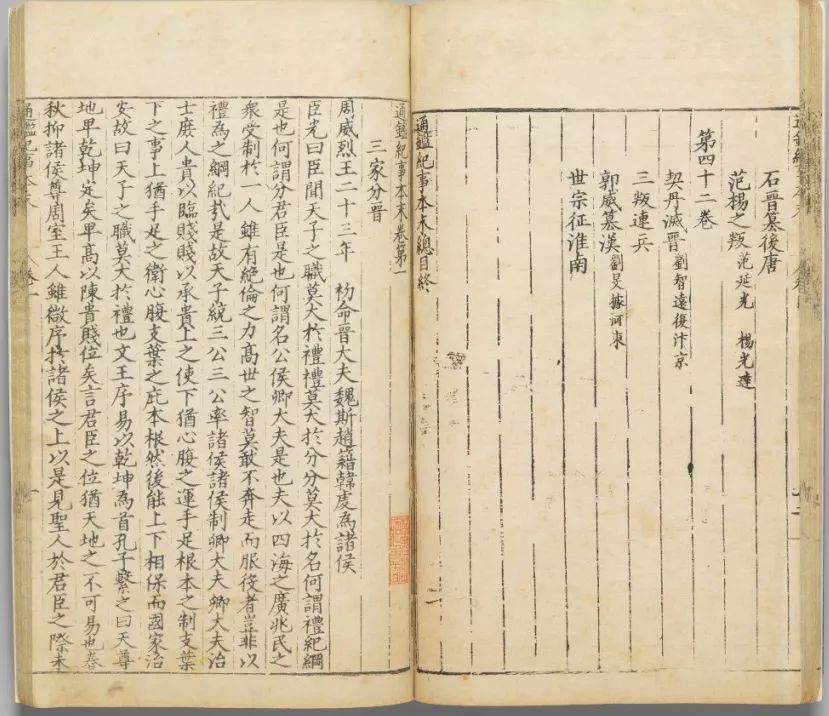 石晉篡後唐
范楊之叛 范延光 楊光遠
第四十二卷
契丹滅晉 劉智遠復汴京
三叛連兵
郭威篡漢 劉旻據河東
世宗征淮南
通鑑紀事本末總目終
通鑑紀事本末卷第一
三家分晉
周威烈王二十三年 初命晉大夫魏斯趙籍韓虔為諸侯
臣光曰臣聞天子之職莫大於禮禮莫大於分分莫大於名何謂禮紀綱
是也何謂分君臣是也何謂名公侯卿大夫是也夫以四海之廣兆民之
衆受制於一人雖有絶倫之力髙世之智莫敢不奔走而服役者豈非以
禮為之綱紀㢤是故天子統三公三公率諸侯諸侯制卿大夫卿大夫治
士庶人貴以臨賤賤以承貴上之使下猶心腹之運手足根本之制支葉
下之事上猶手足之衛心腹支葉之庇本根然後能上下相保而國家治
安故曰天子之職莫大於禮也文王序易以乾坤為首孔子繫之曰天尊
地卑乾坤定矣卑髙以陳貴賤位矣言君臣之位猶天地之不可易也春
秋抑諸侯尊周室王人雖微序於諸侯之上以是見聖人於君臣之際未